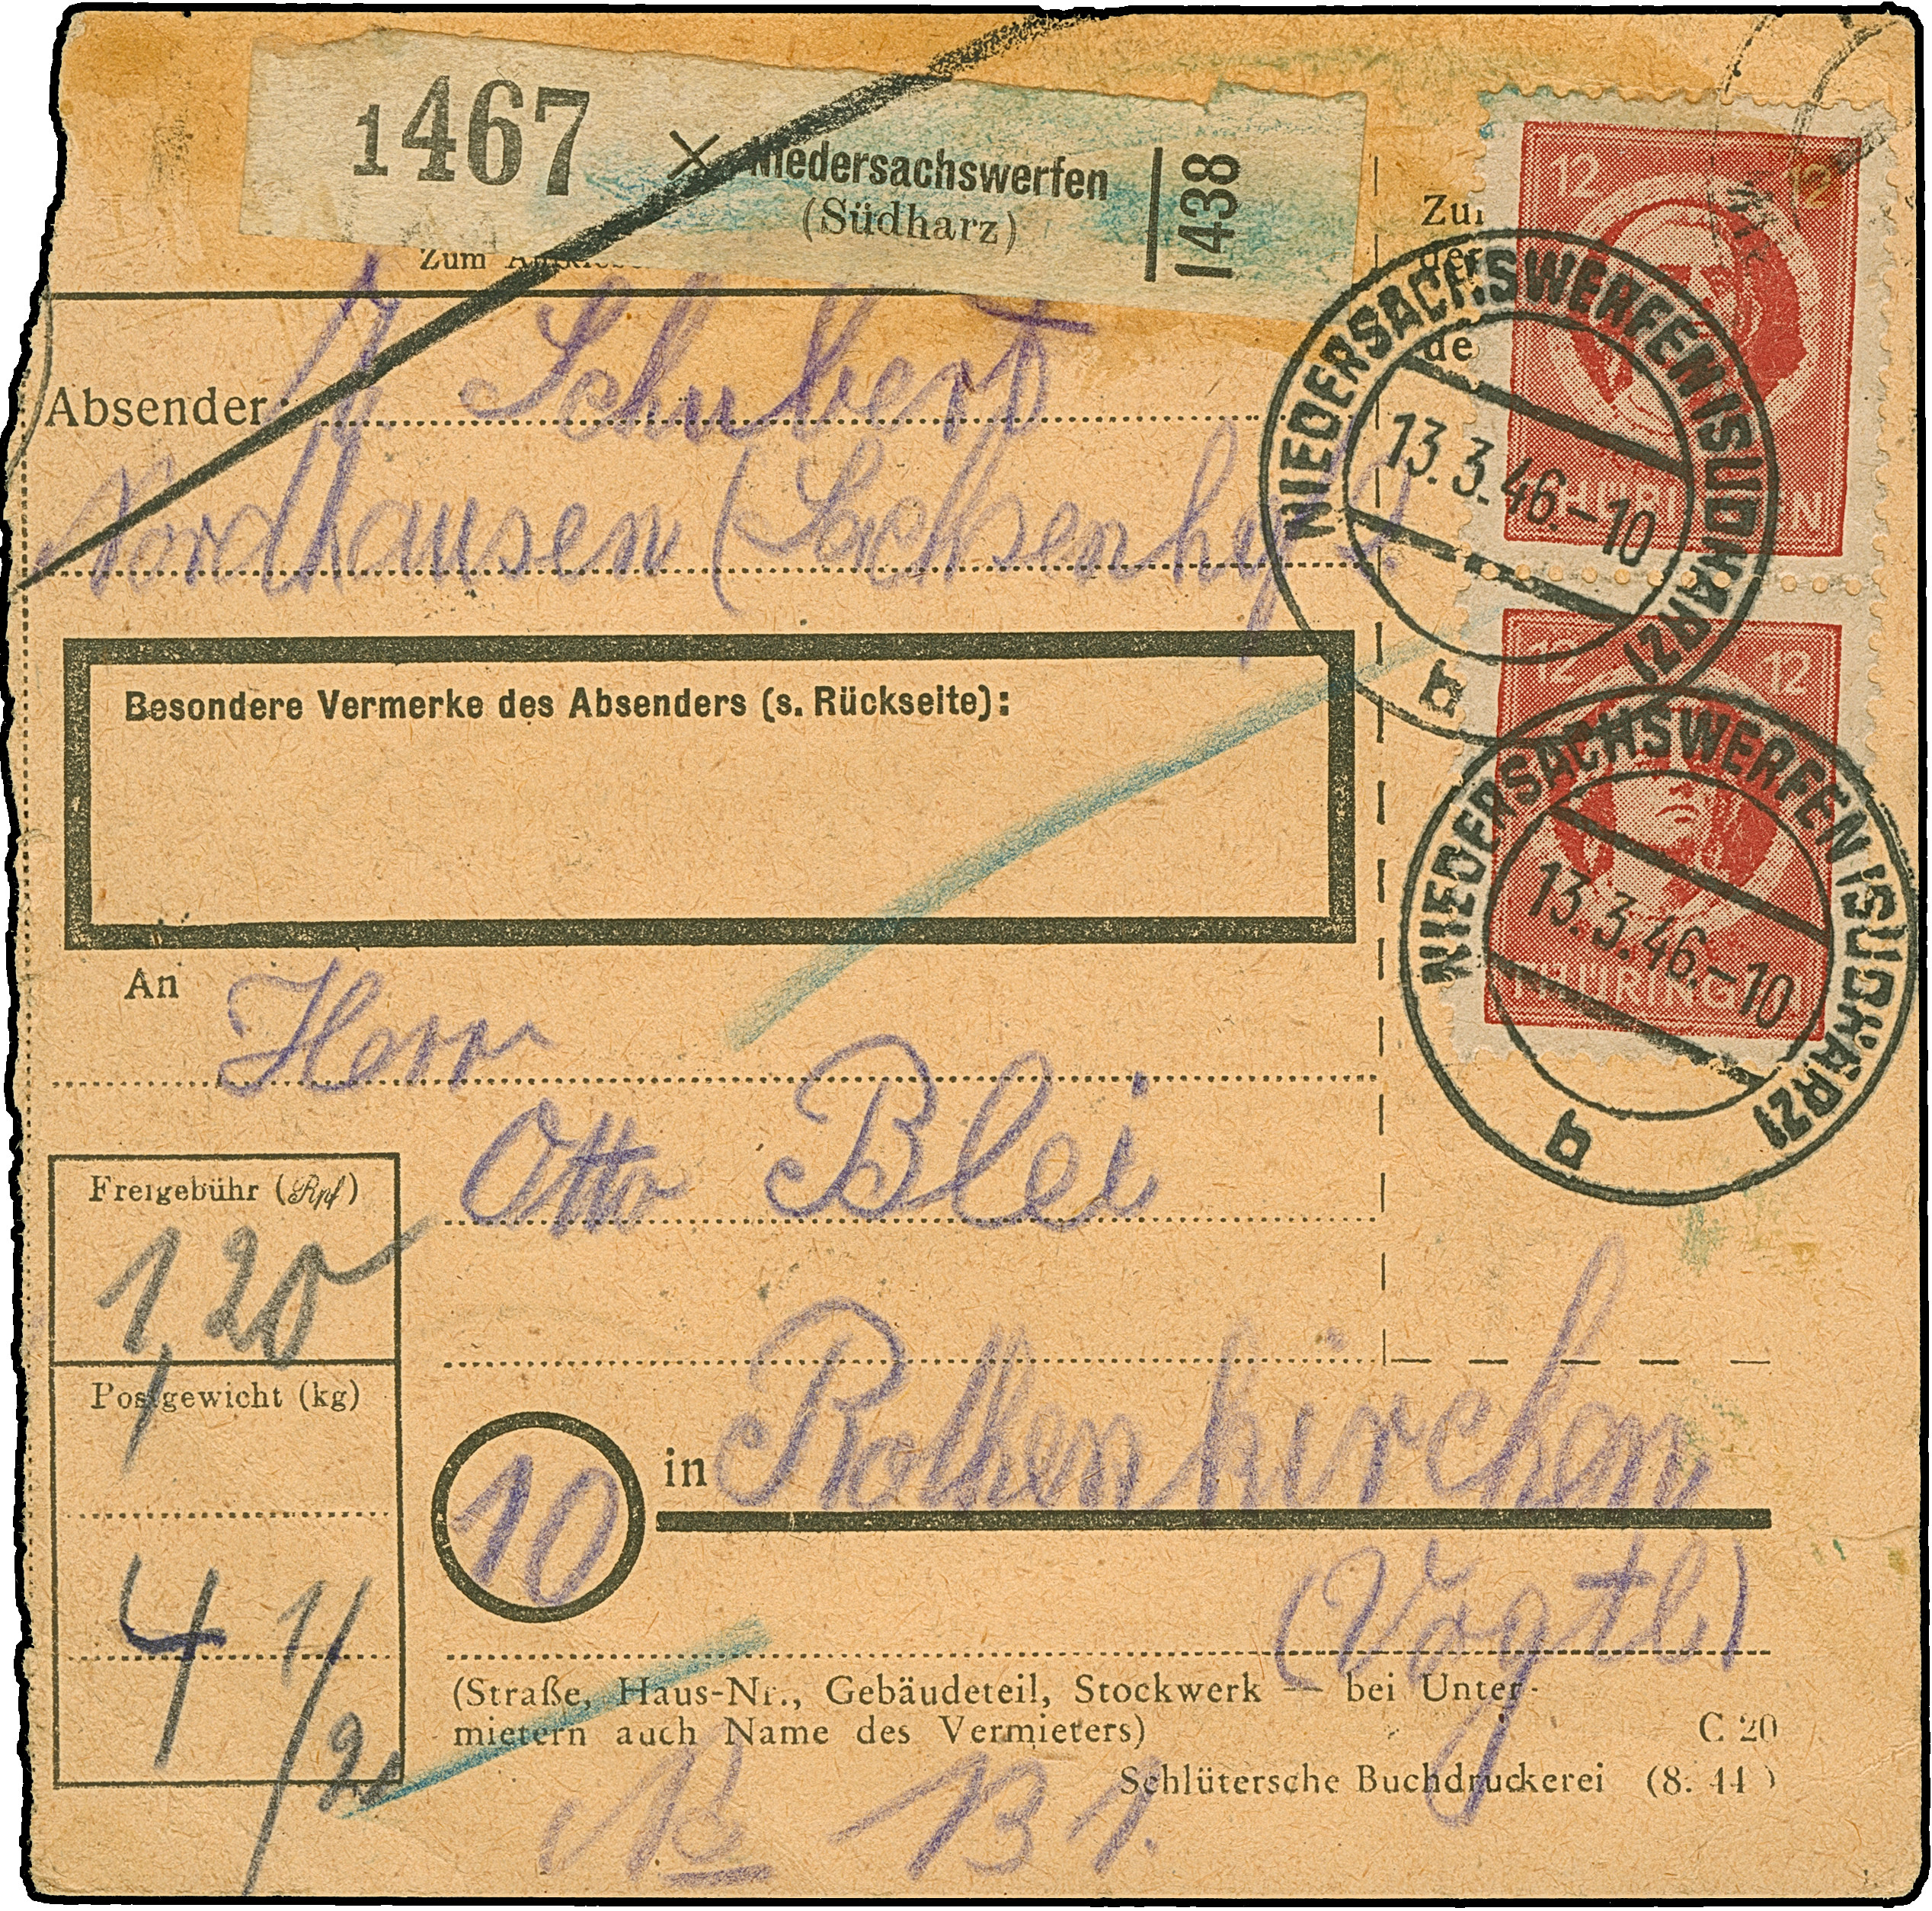 1467 × Niedersachswerfen
(Südharz)
1438
Zum
Absender: Schubert
Nordhausen (Sachsenh
Besondere Vermerke des Absenders (s. Rückseite):
12 12
THÜRINGEN
NIEDERSACHSWERFEN (SÜDHARZ)
13.3.46.-10
a
12 12
THÜRINGEN
NIEDERSACHSWERFEN (SÜDHARZ)
13.3.46.-10
a
An Herrn
Otto Blei
Freigebühr (Rpf)
1,20
Postgewicht (kg)
4 1/2
10 in Rothenkirchen
(Vogtl)
(Straße, Haus-Nr., Gebäudeteil, Stockwerk — bei Unter-
mietern auch Name des Vermieters)
C 20
Schlütersche Buchdruckerei (8. 44)
No 131.